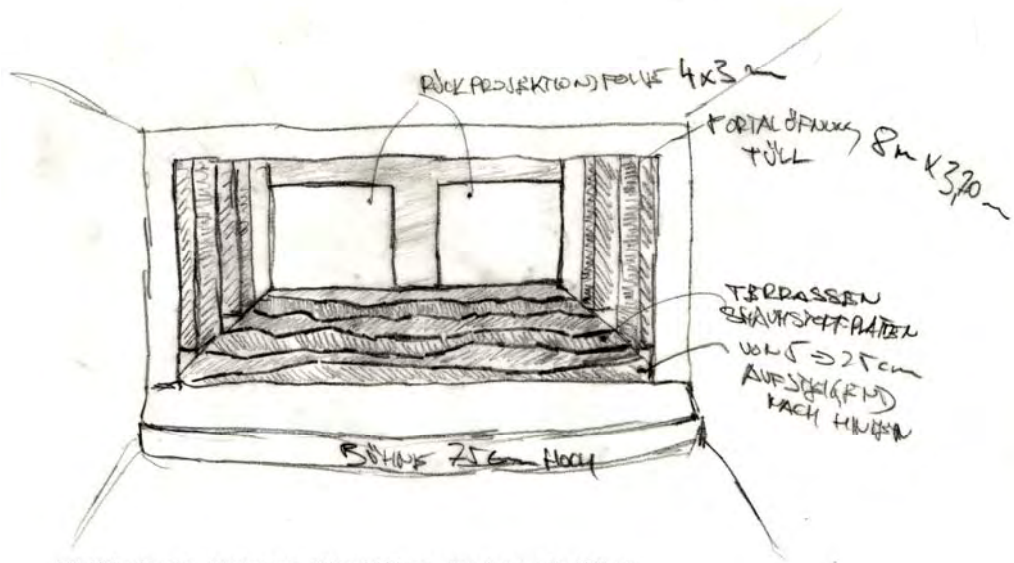 RÜCKPROJEKTIONSFOLIE 4x3 m
PORTALÖFNUNG 8m x 3,20 m
TÜLL
TERRASSEN
SCHAUMSTOFFPLATTEN
VON 5 → 25 cm
AUFSTEIGEND
NACH HINTEN
BÜHNE 75 cm HOCH